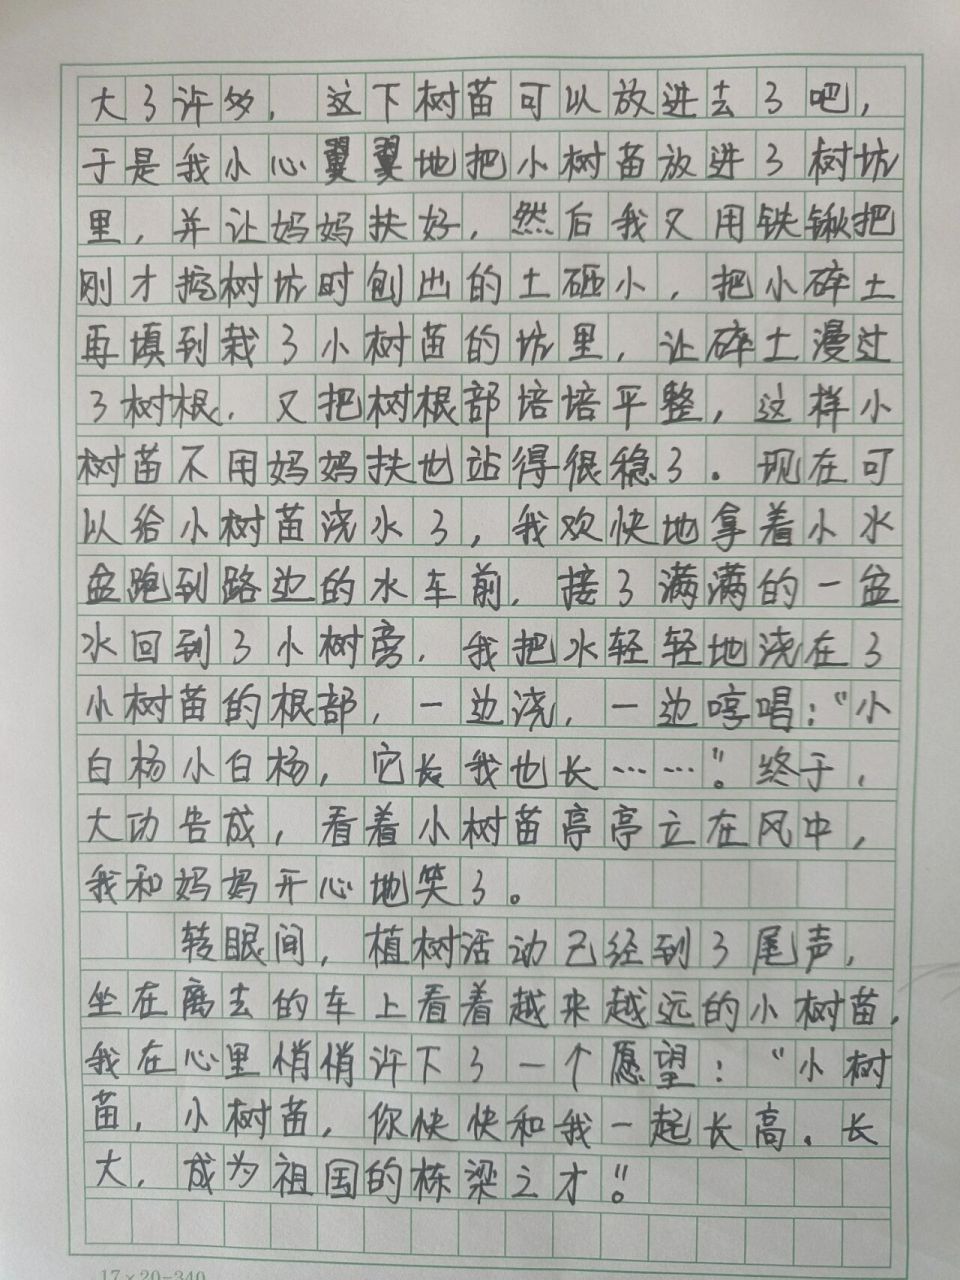 大了许多，这下树苗可以放进去了吧，
于是我小心翼翼地把小树苗放进了树坊
里，并让妈妈扶好，然后我又用铁锹把
刚才挖树坊时刨出的土砸小，把小碎土
再填到栽了小树苗的坊里，让碎土漫过
了树根，又把树根部培培平整，这样小
树苗不用妈妈扶也站得很稳了。现在可
以给小树苗浇水了，我欢快地拿着小水
盆跑到路边的水车前，接了满满的一盆
水回到了小树旁，我把水轻轻地浇在了
小树苗的根部，一边浇，一边哼唱：“小
白杨小白杨，它长我也长……”。终于，
大功告成，看着小树苗亭亭立在风中，
我和妈妈开心地笑了。
转眼间，植树活动已经到了尾声，
坐在离去的车上看着越来越远的小树苗，
我在心里悄悄许下了一个愿望：“小树
苗，小树苗，你快快和我一起长高、长
大，成为祖国的栋梁之才”。
17×20=340